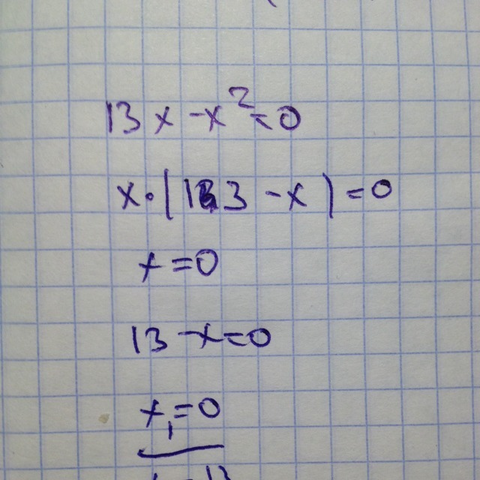 13x - x² = 0
x · (13 - x) = 0
x = 0
13 - x = 0
x₁ = 0